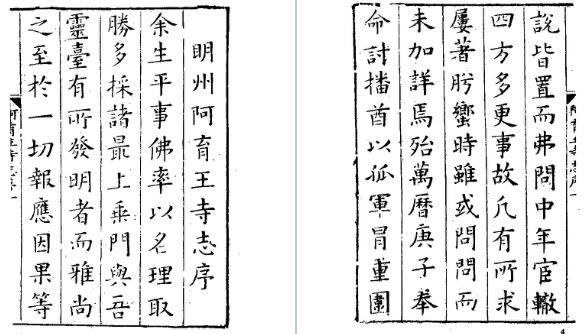 明州阿育王寺志序
余生平事佛率以名理取
勝多採諸最上乘門與吾
靈臺有所發明者而雅尚
之至於一切報應因果等
說皆置而弗問中年宦轍
四方多更事故凡有所求
屢著肹蠁時雖或問問而
未加詳焉殆萬曆庚子奉
命討播酋以孤軍冒重圍